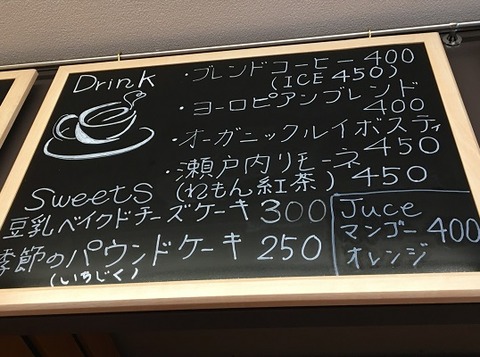 Drink
・ブレンドコーヒー 400
(ICE 450)
・ヨーロピアンブレンド
400
・オーガニックルイボスティ
450
・瀬戸内リモーネ
(れもん紅茶) 450
Sweets
豆乳ベイクドチーズケーキ 300
季節のパウンドケーキ 250
(いちじく)
Juce
マンゴー 400
オレンジ